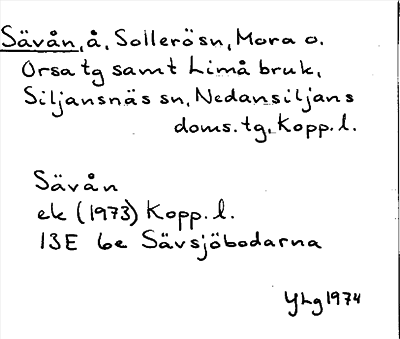 Sävån, å, Sollerö sn, Mora o.
Orsa tg samt Limå bruk,
Siljansnäs sn, Nedansiljans
doms. tg, Kopp. l.
Sävån
ek (1973) Kopp. l.
13E 6e Sävsjöbodarna
YLg 1974